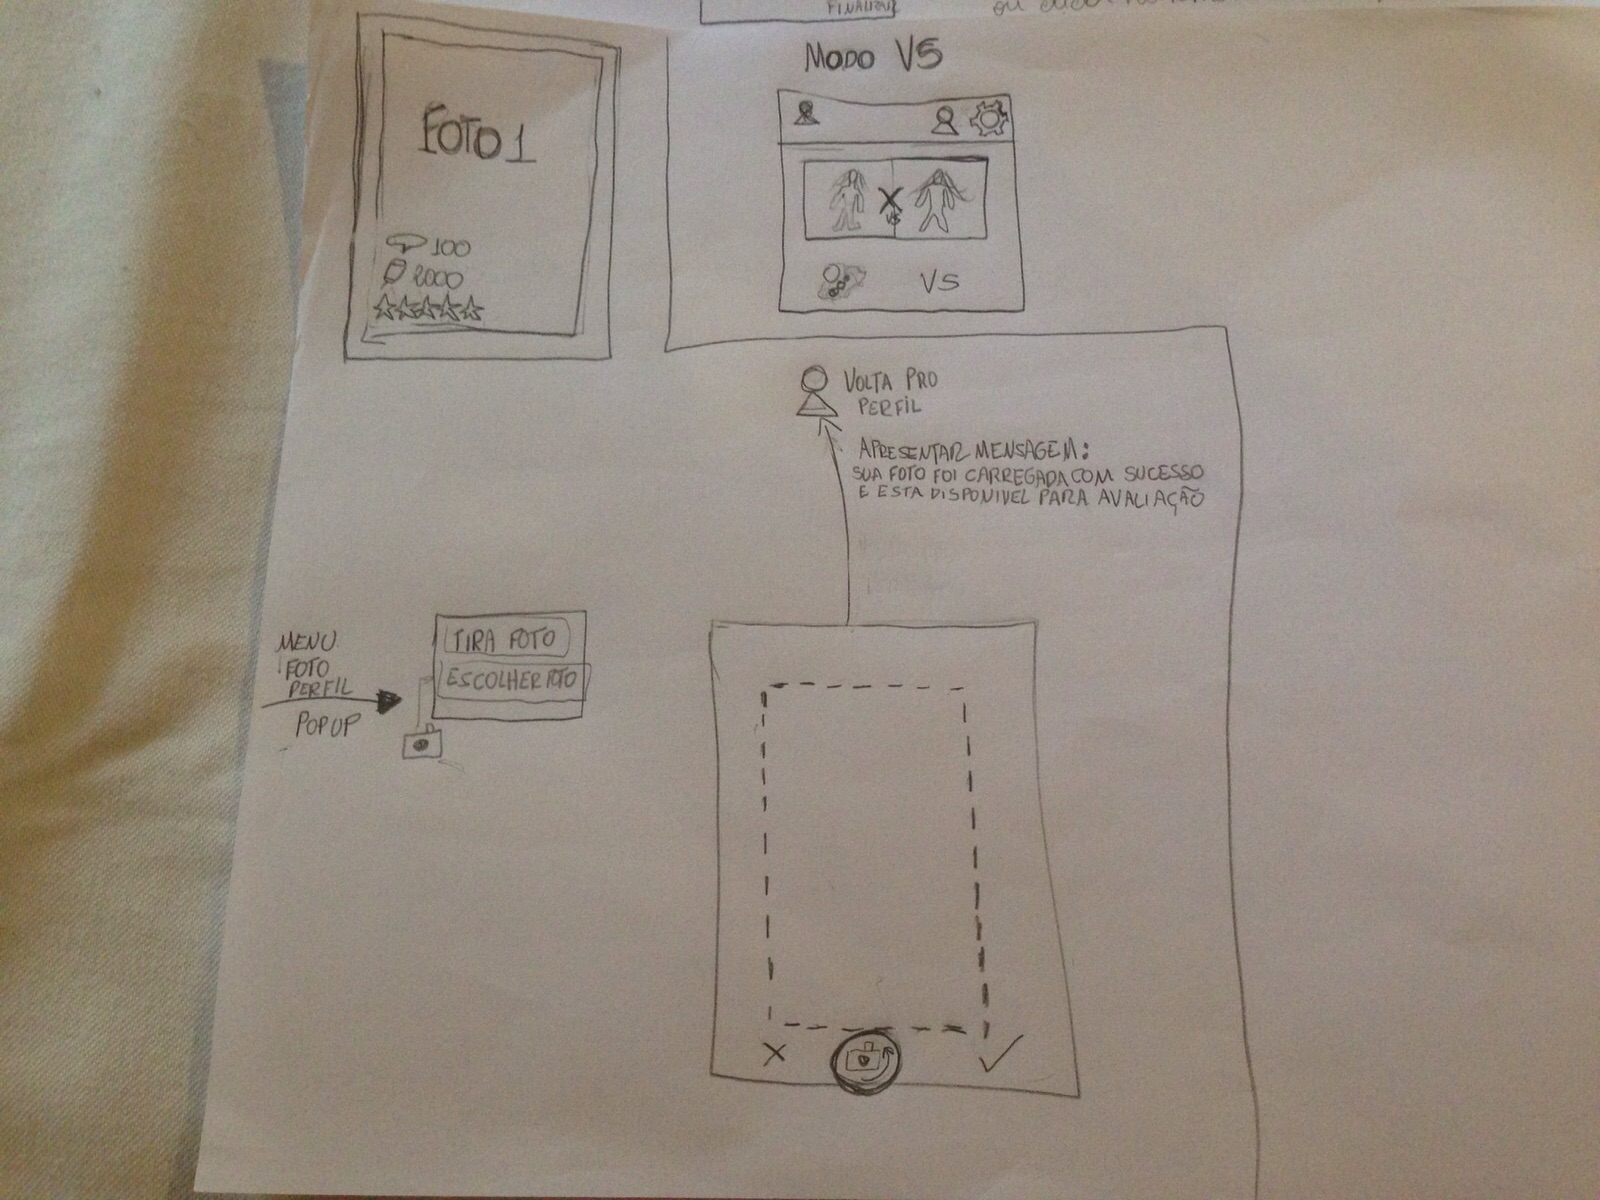 FINALIZAR
MODO VS
FOTO 1
100
2000
VS
VS
VOLTA PRO
PERFIL
APRESENTAR MENSAGEM:
SUA FOTO FOI CARREGADA COM SUCESSO
E ESTA DISPONIVEL PARA AVALIAÇÃO
MENU
FOTO
PERFIL
POPUP
TIRA FOTO
ESCOLHER FOTO